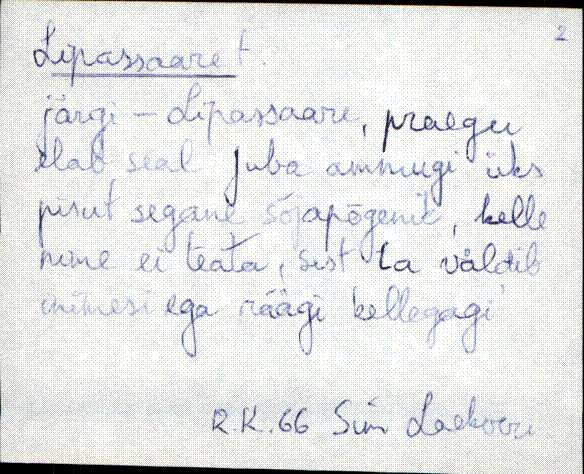 2
Lipassaare t.
järgi - Lipassaare, praegu
elab seal juba ammugi üks
pisut segane sõjapõgenik, kelle
nime ei teata, sest ta väldib
inimesi ega räägi kellegagi
R.K. 66 Siin